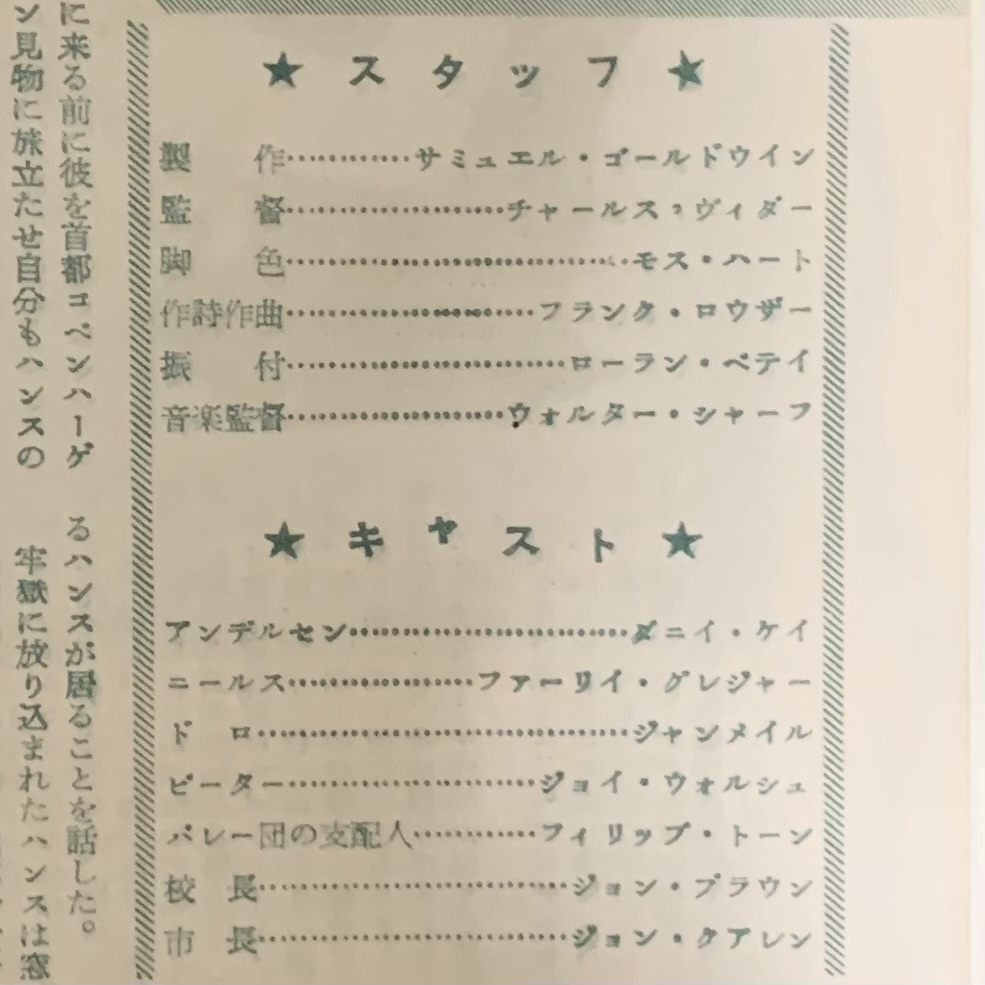 ★スタッフ★
製作…………サミュエル・ゴールドウイン
監督…………………チャールス・ヴィダー
脚色………………………………モス・ハート
作詩作曲……………………フランク・ロウザー
振付………………………ローラン・ペテイ
音楽監督…………………ウォルター・シャーフ
★キャスト★
アンデルセン………………………ダニイ・ケイ
ニールス………………ファーリイ・グレジャー
ドロ………………………………ジャンメイル
ピーター……………………ジョイ・ウォルシュ
バレー団の支配人…………フィリップ・トーン
校長…………………………ジョン・ブラウン
市長…………………………ジョン・ケアレン
に来る前に彼を首都コペンハーゲ
ン見物に旅立たせ自分もハンスの
るハンスが居ることを話した。
牢獄に放り込まれたハンスは窓